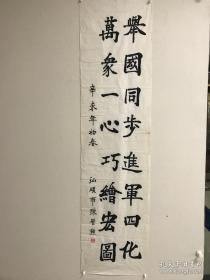 舉國同步進軍四化
萬衆一心巧繪宏圖
辛未年初春
汕頭市陳